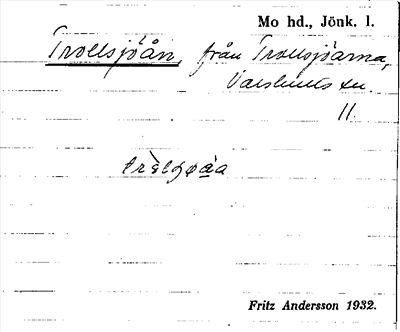 Mo hd., Jönk. l.
Trollsjöån, från Trollsjöarna,
Valshults sn.
11.
Fritz Andersson 1932.